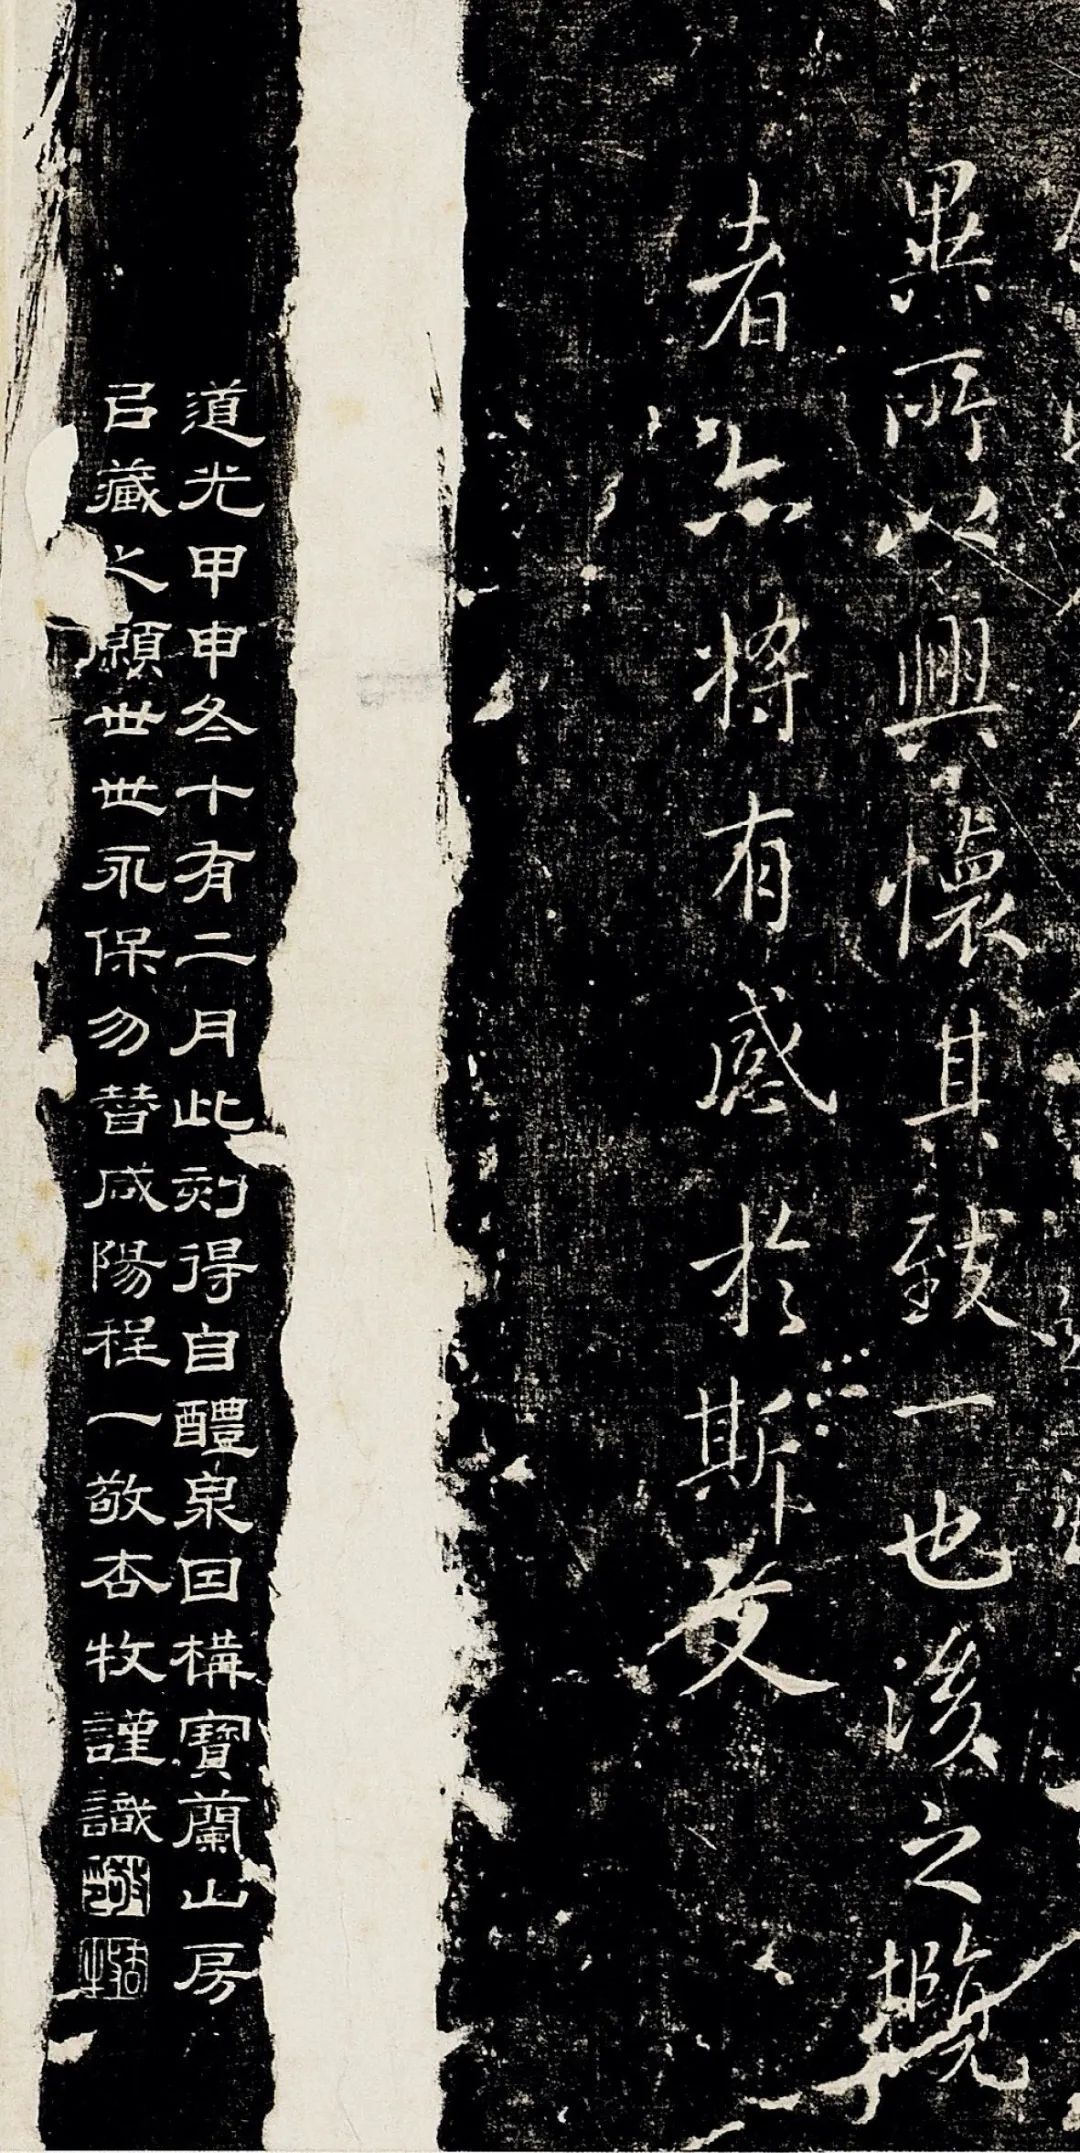 異所以興懷其致一也後之攬
者亦將有感於斯文
道光甲申冬十有二月此刻得自醴泉因構寶蘭山房
㠯藏之願世世永保勿替咸陽程一敬杏牧謹識